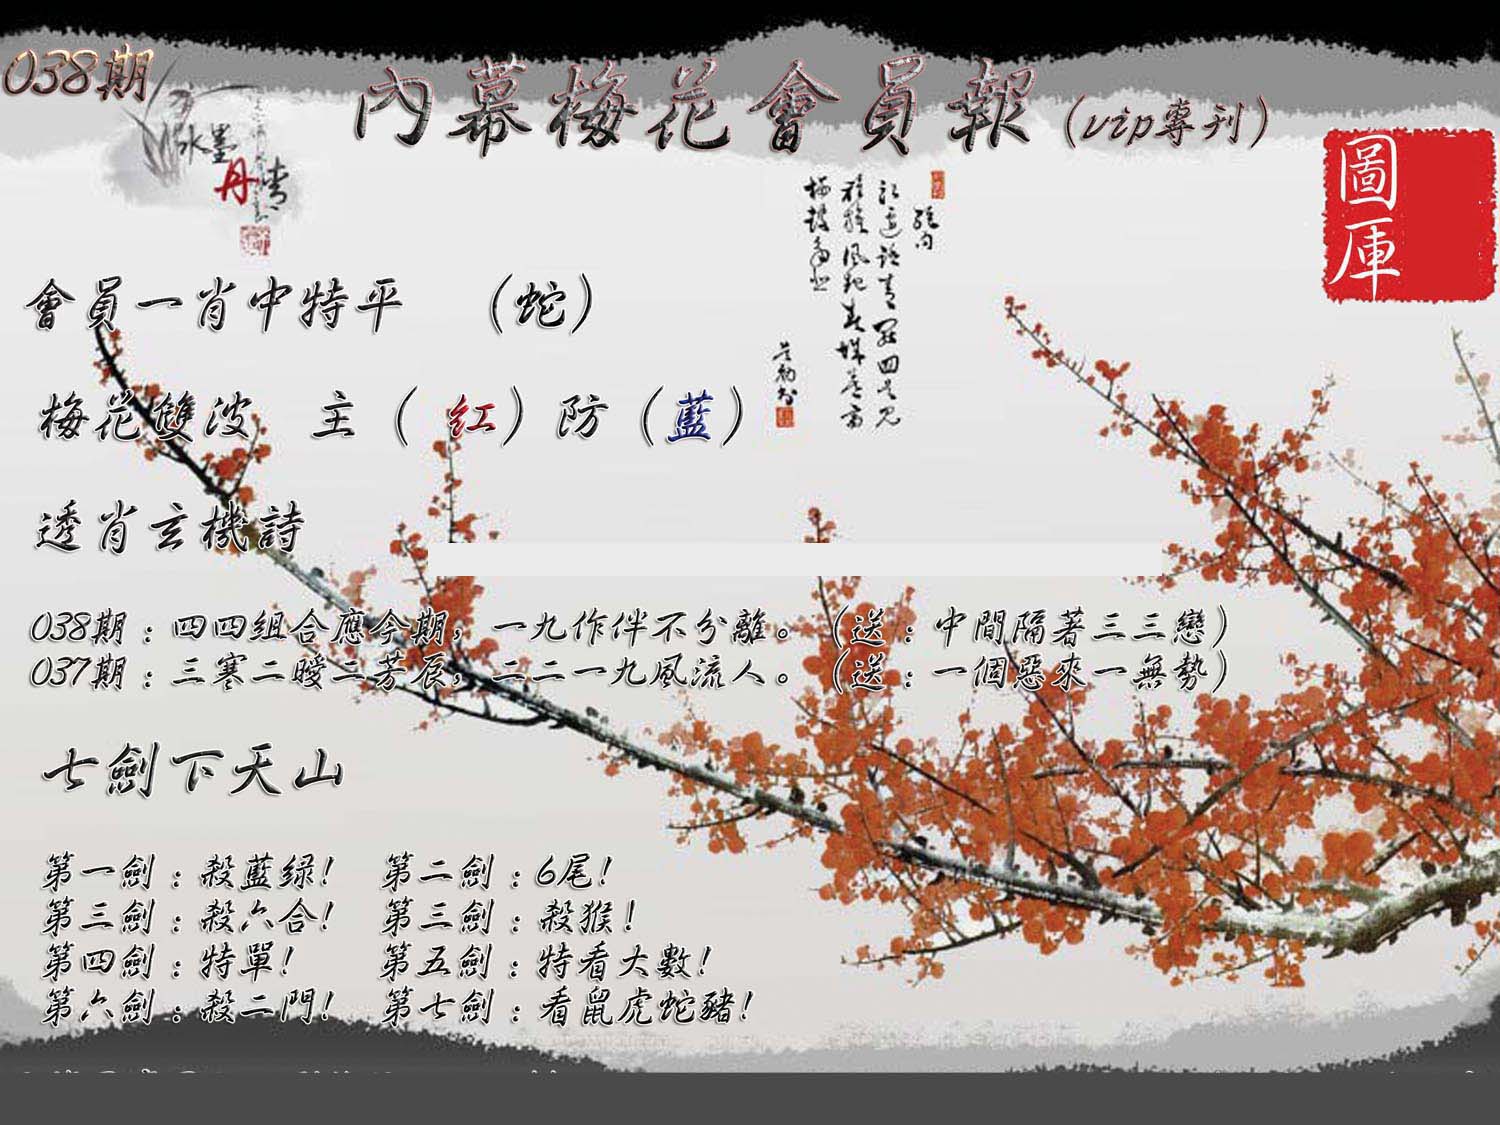 038期
內幕梅花會員報(vip專刊)
水墨
丹青
圖庫
會員一肖中特平 (蛇)
梅花雙波 主(紅)防(藍)
透肖玄機詩
038期:四四組合應今期,一九作伴不分離。(送:中間隔著三三戀)
037期:三寒二曖二芳辰,二二一九風流人。(送:一個惡來一無勢)
七劍下天山
第一劍:殺藍绿! 第二劍:6尾!
第三劍:殺六合! 第三劍:殺猴!
第四劍:特單! 第五劍:特看大數!
第六劍:殺二門! 第七劍:看鼠虎蛇豬!